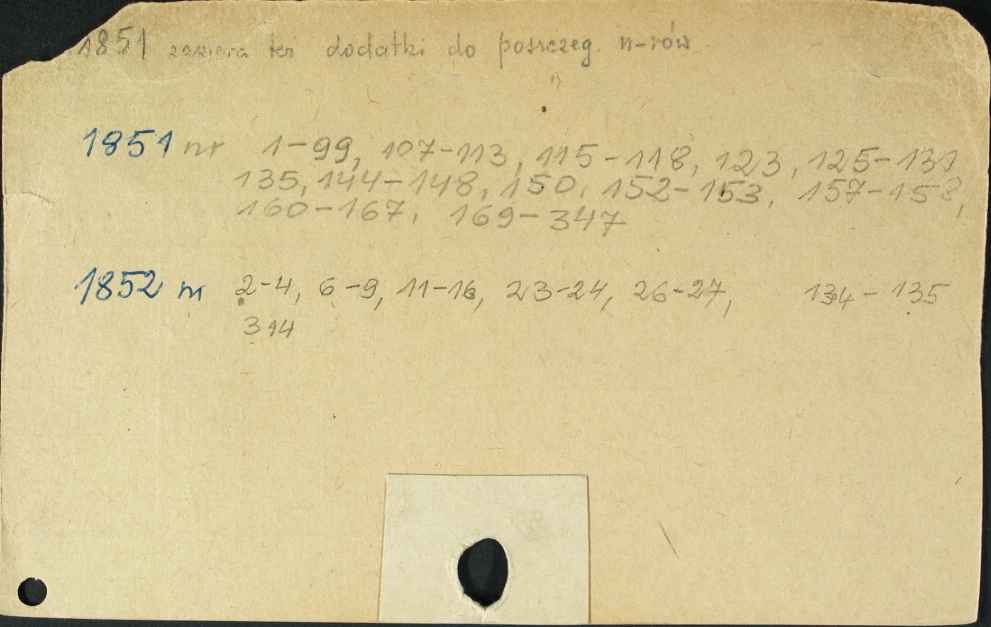 1851 zawiera też dodatki do poszczeg. n-rów
1851 nr 1-99, 107-113, 115-118, 123, 125-131
135, 144-148, 150, 152-153, 157-158,
160-167, 169-347
1852 nr 2-4, 6-9, 11-16, 23-24, 26-27, 134-135
314